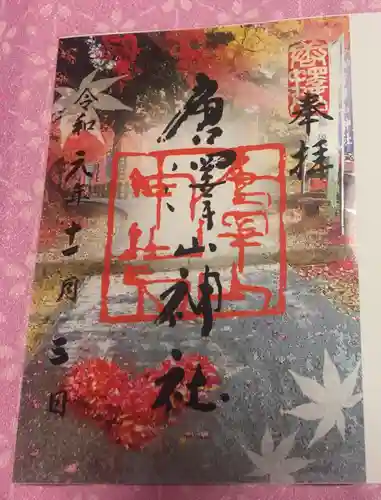 奉拝
唐澤山神社
令和元年十一月三日
唐澤山神社